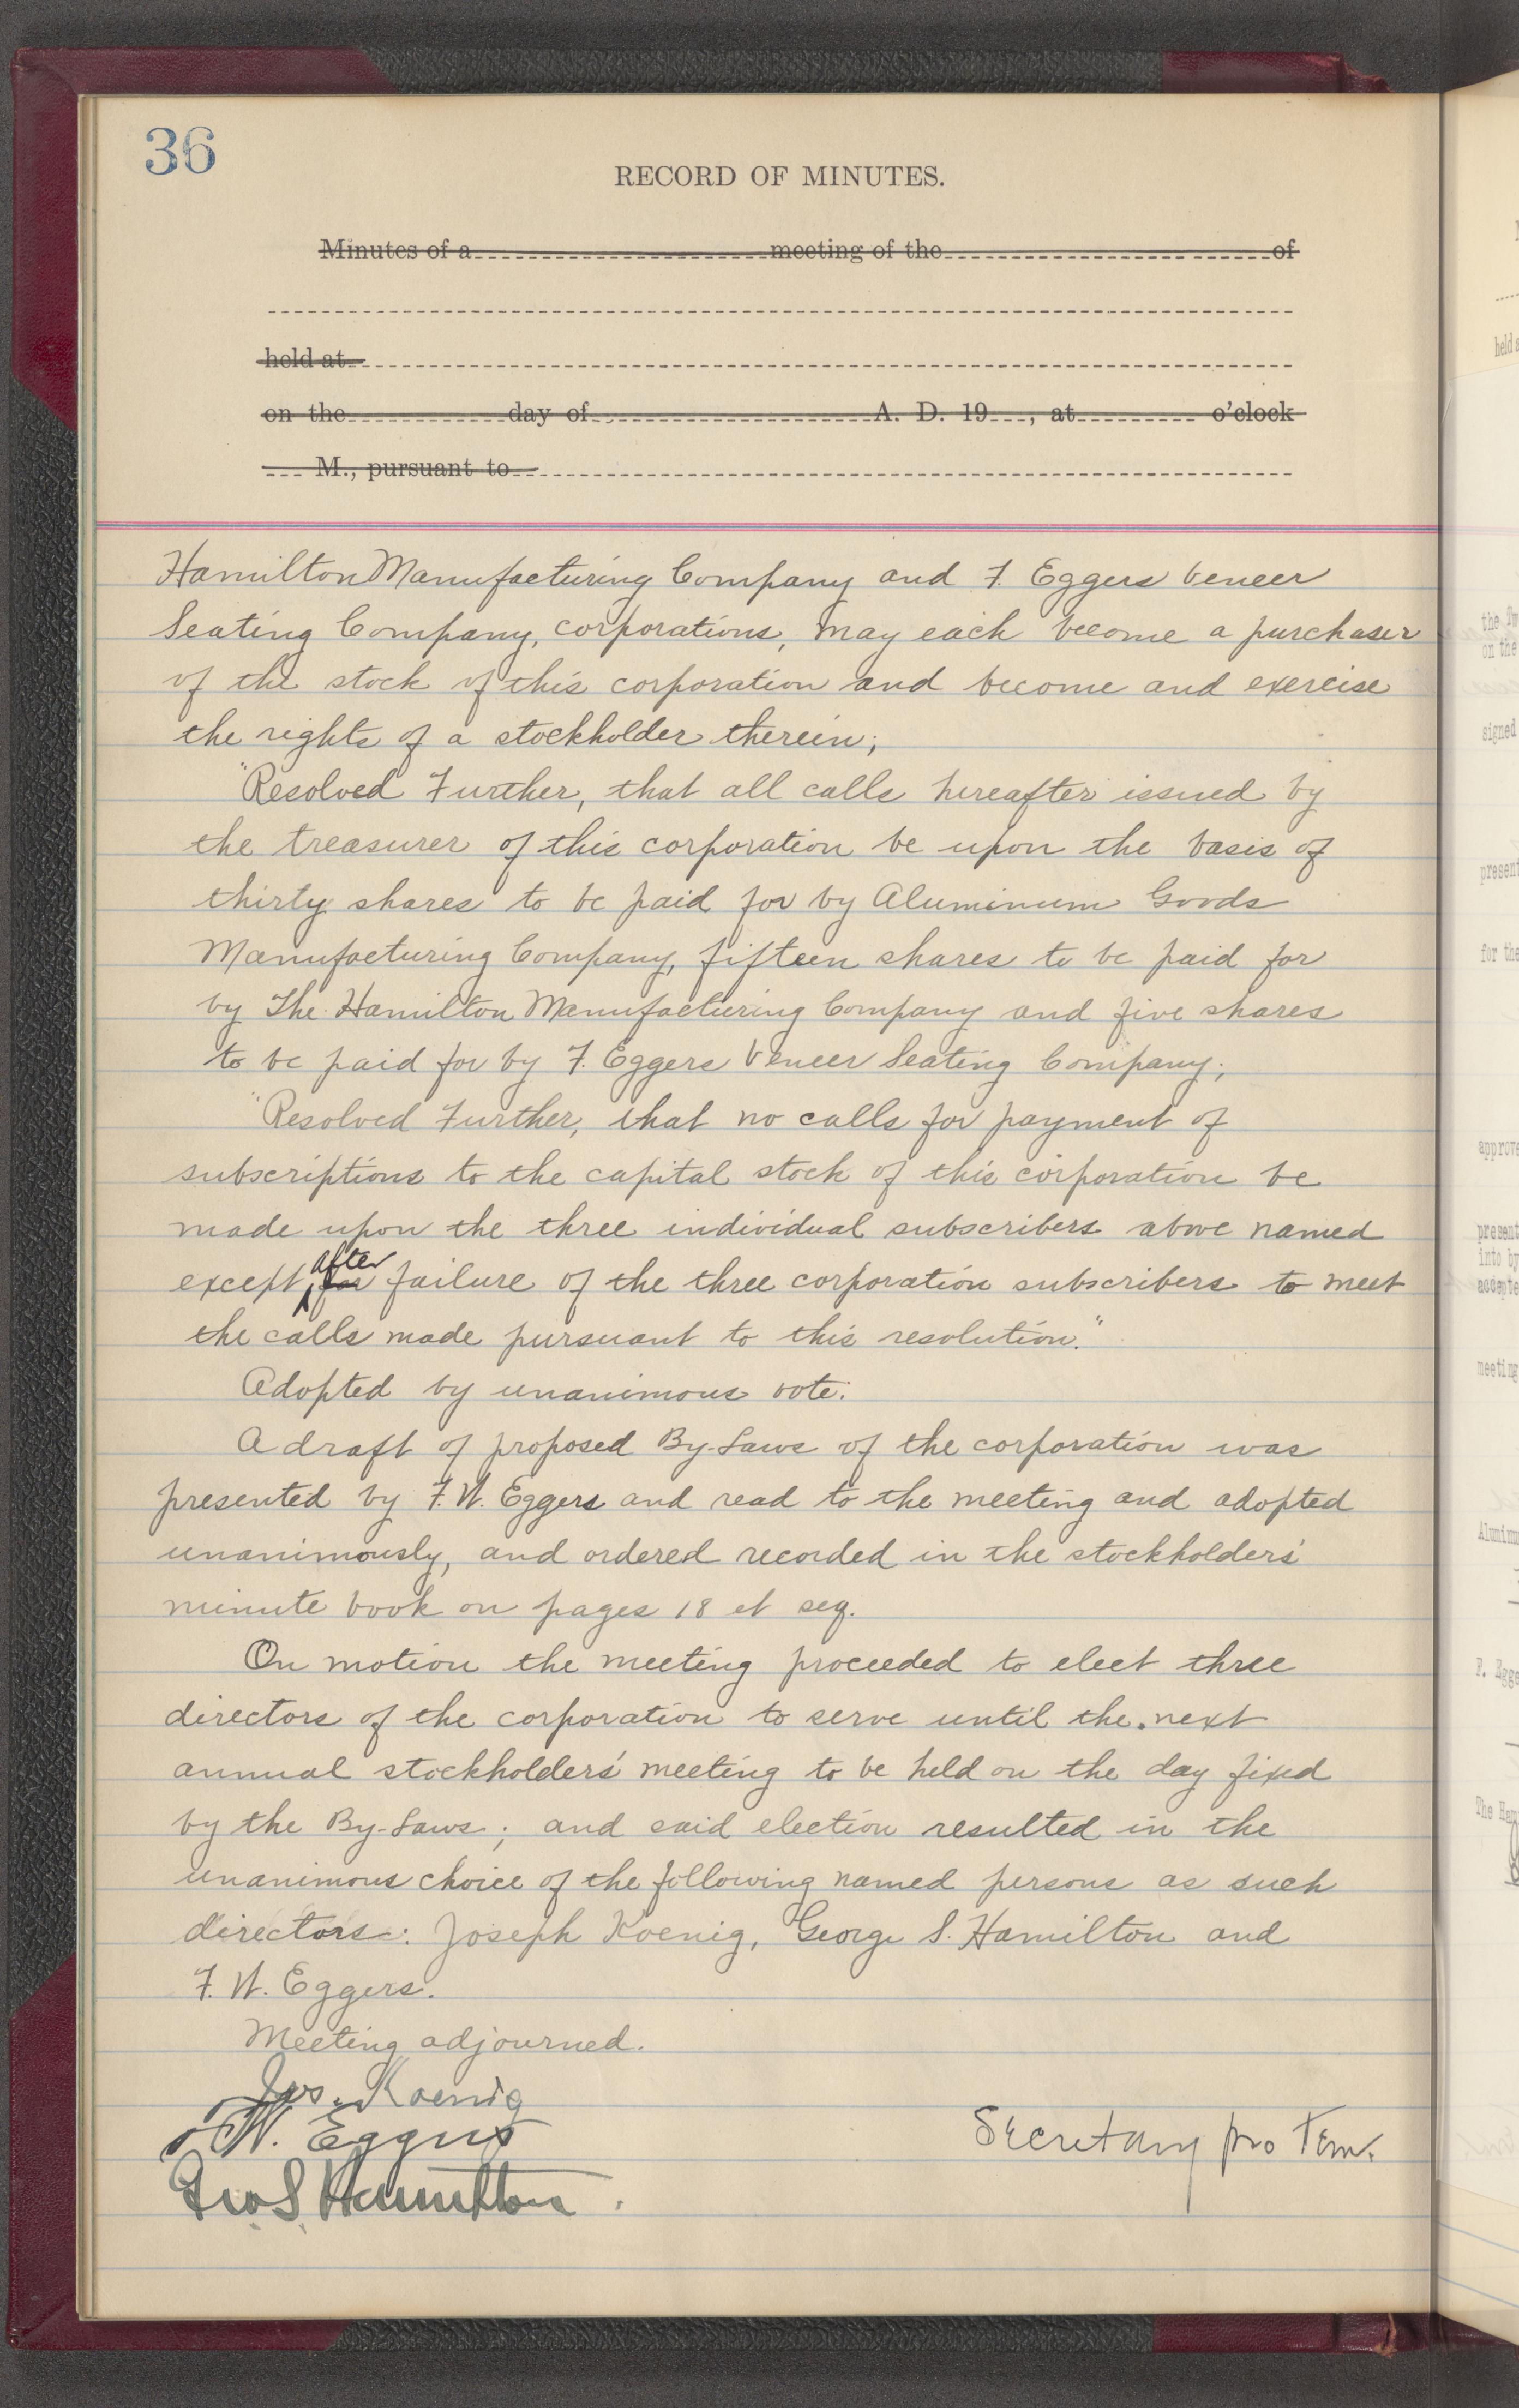 36
RECORD OF MINUTES.
Minutes of a meeting of the of
held at
on the day of A. D. 19 , at o'clock
M., pursuant to
Hamilton Manufacturing Company and F. Eggers Veneer
Seating Company, corporations, may each become a purchaser
of the stock of this corporation and become and exercise
the rights of a stockholder therein;
"Resolved Further, that all calls hereafter issued by
the treasurer of this corporation be upon the basis of
thirty shares to be paid for by Aluminum Goods
Manufacturing Company, fifteen shares to be paid for
by The Hamilton Manufacturing Company and five shares
to be paid for by F. Eggers Veneer Seating Company;
"Resolved Further, that no calls for payment of
subscriptions to the capital stock of this corporation be
made upon the three individual subscribers above named
except after for failure of the three corporation subscribers to meet
the calls made pursuant to this resolution."
Adopted by unanimous vote.
A draft of proposed By-Laws of the corporation was
presented by F. W. Eggers and read to the meeting and adopted
unanimously, and ordered recorded in the stockholders'
minute book on pages 18 et seq.
On motion the meeting proceeded to elect three
directors of the corporation to serve until the next
annual stockholders' meeting to be held on the day fixed
by the By-Laws; and said election resulted in the
unanimous choice of the following named persons as such
directors: Joseph Koenig, George S. Hamilton and
F. W. Eggers.
Meeting adjourned.
Jos. Koenig
F. W. Eggers
Secretary pro Tem.
Geo S Hamilton.